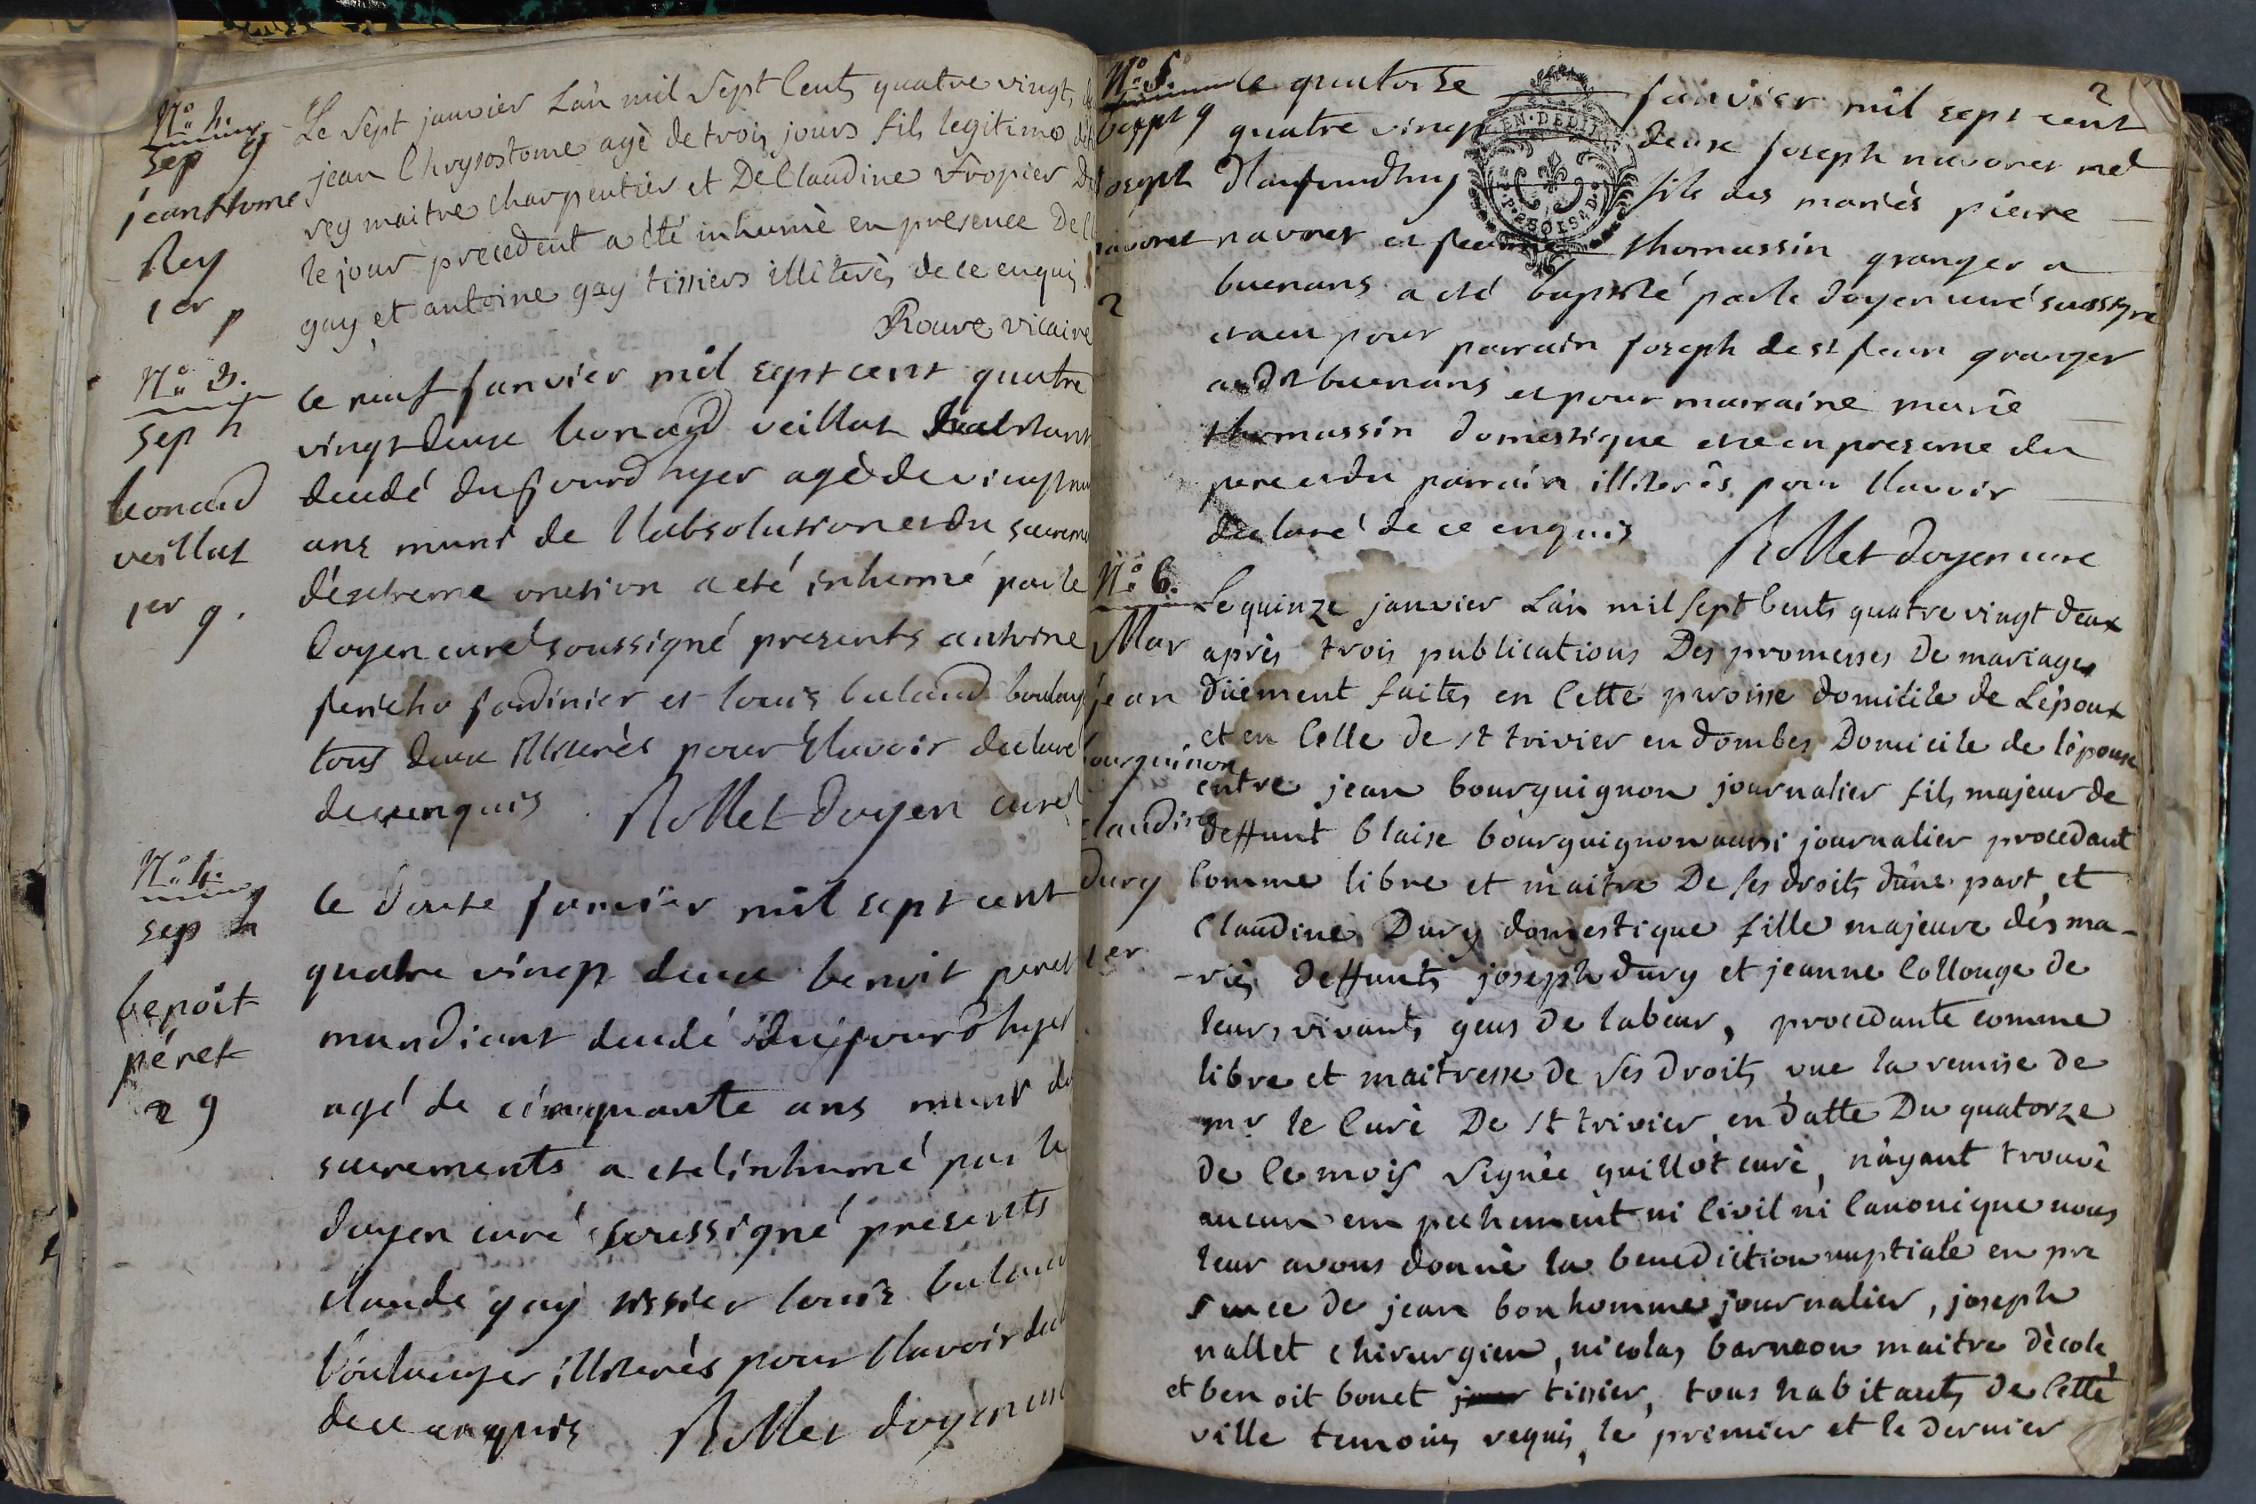 N.º 2.
sep g
jean Ctome
Rey
1er p
Le Sept janvier L'an mil Sept Cents quatre vingt
jean Chrysostome agè de trois jours fils legitime
rey maitre charpentier et De Claudine Tropier
le jour precedent a été inhumè en presence De
gay et antoine gay tissiers illiterès de ce enquis
Rouve vicaire
N.º 3.
sep h
leonard
veillat
1er g.
le neuf janvier mil sept cent quatre
vingt deux leonard veillat habitant
decedé du jourd hyer agé de vingt
ans muni de l'absolution et du sacrem
d'extreme onction a eté inhumé par le
doyen curé soussigné presents antoine
jericho jardinier et louis baland boulang
tous deux illiterés pour l'avoir declaré
de ce enquis Rollet doyen curé
N.º 4.
sep h
benoit
péret
2 g
le douze janvier mil sept cent
quatre vingt deux benoit peret
mandiant decedé du jourd hyer
agé de cinquante ans muni de
sacrements a eté inhumé par le
doyen curé soussigné presents
claude gay tissier louis baland
boulanger illiterés pour l'avoir decl
de ce enquis Rollet doyen curé
2
N.º 5.
bapt g
joseph
navoret
2
le quatorze janvier mil sept cent
quatre vingt deux joseph navoret né
d'aujourdhuy fils des mariés pierre
navoret et jeanne thomassin granger a
buenans a eté baptisé par le doyen curé soussigné
et a eu pour parrain joseph de st jean granger
au dt buenans et pour marraine marie
thomassin domestique et ce en presence du
pere et du parrain illiterés pour l'avoir
declaré de ce enquis Rollet doyen curé
N.º 6.
Mar
jean
bourguinon
Claudine
Dury
1er
Le quinze janvier L'an mil Sept Cents quatre vingt deux
après trois publications Des promesses De mariage
düement faites en Cette paroisse domicile de L'époux
et en Celle de st trivier en dombes Domicile de l'épouse
entre jean bourguignon journalier fils majeur de
deffunt blaise bourguignon aussi journalier procedant
Comme libre et maitre De ses droits d'une part et
Claudine Dury domestique fille majeure des ma-
-riés deffunts joseph dury et jeanne Collonge de
leurs vivants gens de labeur, procedante comme
libre et maitresse de ses droits, vue la remise de
mr le Curé De st trivier en datte Du quatorze
de ce mois Signée guillot curé, n'ayant trouvé
aucun empechement ni Civil ni Canonique nous
leur avons donné la benediction nuptiale en pre
sence de jean bonhomme journalier, joseph
nallet chirurgien, nicolas barnaon maitre d'école,
et benoit bouet tissier, tous habitants de Cette
ville temoins requis, le premier et le dernier